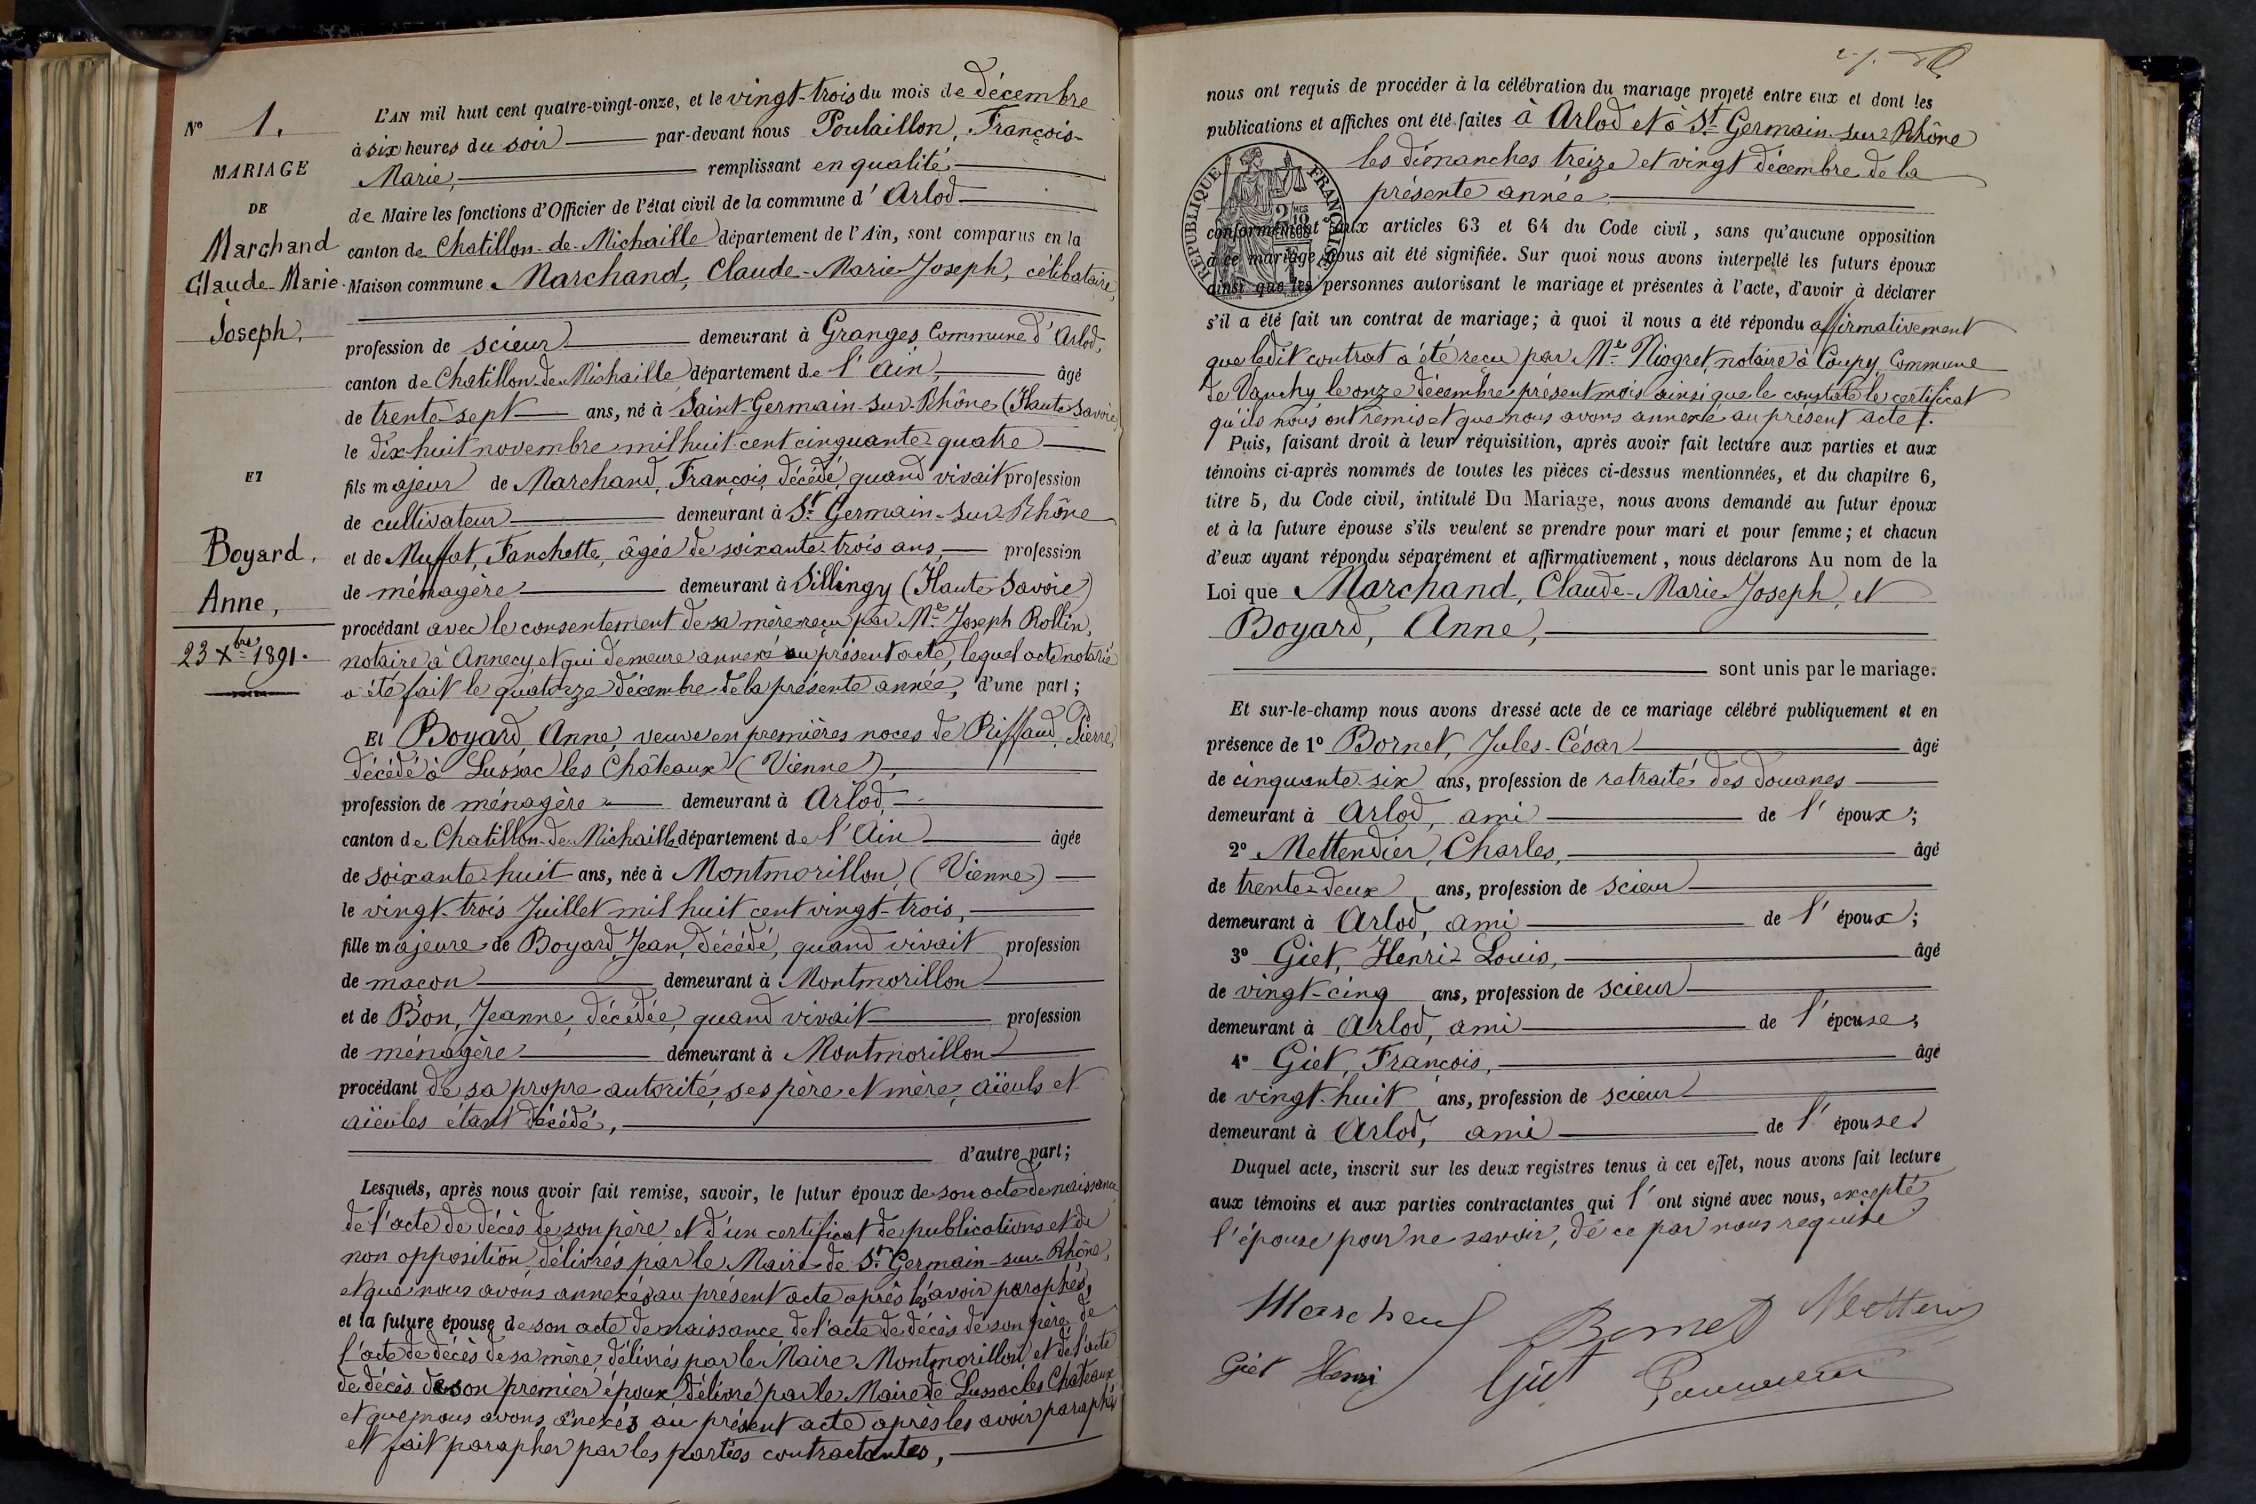 N° 1.
MARIAGE
DE
Marchand
Claude-Marie-
Joseph,
ET
Boyard,
Anne,
23 Xbre 1891.
L'AN mil huit cent quatre-vingt-onze, et le vingt-trois du mois de décembre
à six heures du soir par-devant nous Poulaillon, François-
Marie, remplissant en qualité
de Maire les fonctions d'Officier de l'état civil de la commune d'Arlod
canton de Chatillon-de-Michaille département de l'Ain, sont comparus en la
Maison commune Marchand, Claude-Marie-Joseph, célibataire,
profession de scieur demeurant à Granges Commune d'Arlod,
canton de Chatillon-de-Michaille département de l'Ain, âgé
de trente-sept ans, né à Saint-Germain-sur-Rhône (Haute Savoie)
le dix-huit novembre mil huit cent cinquante-quatre
fils majeur de Marchand, François, décédé, quand vivait profession
de cultivateur demeurant à St Germain-sur-Rhône
et de Muffat, Fanchette, âgée de soixante-trois ans, profession
de ménagère demeurant à Sillingy (Haute Savoie)
procédant avec le consentement de sa mère reçu par Me Joseph Rollin,
notaire à Annecy, et qui demeure annexé au présent acte, lequel acte notarié
a été fait le quatorze décembre de la présente année, d'une part;
Et Boyard, Anne, veuve en premières noces de Riffaud, Pierre,
décédé à Lussac les Châteaux (Vienne),
profession de ménagère demeurant à Arlod,
canton de Chatillon-de-Michaille département de l'Ain âgée
de soixante-huit ans, née à Montmorillon, (Vienne)
le vingt-trois Juillet mil huit cent vingt-trois,
fille majeure de Boyard, Jean, décédé, quand vivait profession
de maçon demeurant à Montmorillon
et de Bon, Jeanne, décédée, quand vivait profession
de ménagère demeurant à Montmorillon
procédant de sa propre autorité, ses père et mère, aïeuls et
aïeules étant décédé,
d'autre part;
Lesquels, après nous avoir fait remise, savoir, le futur époux de son acte de naissance
de l'acte de décès de son père, et d'un certificat de publications et de
non opposition, délivrés par le Maire de St Germain-sur-Rhône,
et que nous avons annexés au présent acte après les avoir paraphés,
et la future épouse de son acte de naissance, de l'acte de décès de son père, de
l'acte de décès de sa mère, délivrés par le Maire Montmorillon, et de l'acte
de décès de son premier époux, délivré par le Maire de Lussac les Châteaux
et que nous avons anexés au présent acte après les avoir paraphés
et fait parapher par les parties contractantes,
nous ont requis de procéder à la célébration du mariage projeté entre eux et dont les
publications et affiches ont été faites à Arlod et à St Germain-sur-Rhône
les dimanches treize et vingt décembre de la
présente année
RÉPUBLIQUE FRANÇAISE
conformément aux articles 63 et 64 du Code civil, sans qu'aucune opposition
à ce mariage nous ait été signifiée. Sur quoi nous avons interpellé les futurs époux
ainsi que les personnes autorisant le mariage et présentes à l'acte, d'avoir à déclarer
s'il a été fait un contrat de mariage; à quoi il nous a été répondu affirmativement
que ledit contrat a été reçu par Me Niogret, notaire à Coupy, Commune
de Vanchy le onze décembre présent mois ainsi que le constate le certificat
qu'ils nous ont remis et que nous avons annexé au présent acte.
Puis, faisant droit à leur réquisition, après avoir fait lecture aux parties et aux
témoins ci-après nommés de toutes les pièces ci-dessus mentionnées, et du chapitre 6,
titre 5, du Code civil, intitulé Du Mariage, nous avons demandé au futur époux
et à la future épouse s'ils veulent se prendre pour mari et pour femme; et chacun
d'eux ayant répondu séparément et affirmativement, nous déclarons Au nom de la
Loi que Marchand, Claude-Marie-Joseph, et
Boyard, Anne,
sont unis par le mariage.
Et sur-le-champ nous avons dressé acte de ce mariage célébré publiquement et en
présence de 1° Bornet, Jules-César âgé
de cinquante-six ans, profession de retraité des douanes
demeurant à Arlod, ami de l'époux;
2° Mettendier, Charles, âgé
de trente-deux ans, profession de scieur
demeurant à Arlod, ami de l'époux;
3° Giet, Henri-Louis, âgé
de vingt-cinq ans, profession de scieur
demeurant à Arlod, ami de l'épouse;
4° Giet, François, âgé
de vingt-huit ans, profession de scieur
demeurant à Arlod, ami de l'épouse.
Duquel acte, inscrit sur les deux registres tenus à cet effet, nous avons fait lecture
aux témoins et aux parties contractantes qui l'ont signé avec nous, excepté
l'épouse pour ne savoir, de ce par nous requise.
Marchand Bornet
Giet Henri Giet